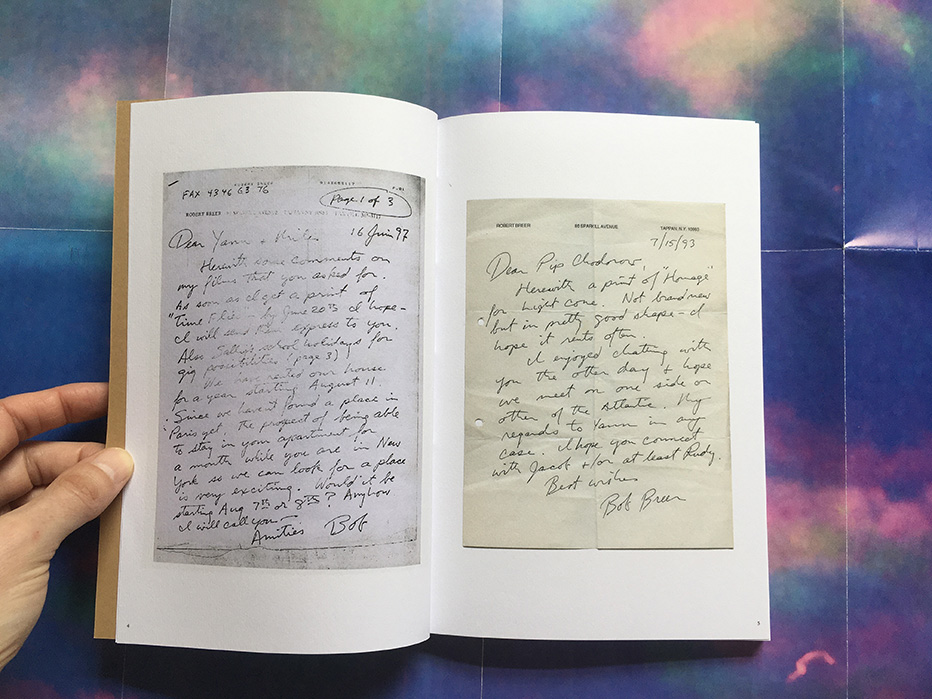 FAX 43 46 63 76
Page 1 of 3
ROBERT BREER
Dear Yann + Miles 16 Jun 97
Herewith some comments on
my films that you asked for.
As soon as I get a print of
"Time Flies" - by June 20th I hope -
I will send them express to you.
Also school holidays for
gig possibilities (page 3)
We have rented our house
for a year starting August 11.
Since we haven't found a place in
Paris yet, the prospect of being able
to stay in your apartment for
a month while you are in New
York so we can look for a place
is very exciting. Would it be
starting Aug 7th or 8th? Anyhow
I will call you -
Amities Bob
4
ROBERT BREER 80 SPARKILL AVENUE TAPPAN, N.Y. 10983
7/15/93
Dear Pip Chodorov,
Herewith a print of "Homage"
for Light Cone. Not brand new
but in pretty good shape - I
hope it rents often.
I enjoyed chatting with
you the other day & hope
we meet on one side or
other of the Atlantic. My
regards to Yann in any
case. I hope you connect
with Jacob +/or at least Rudy.
Best wishes
Bob Breer
5